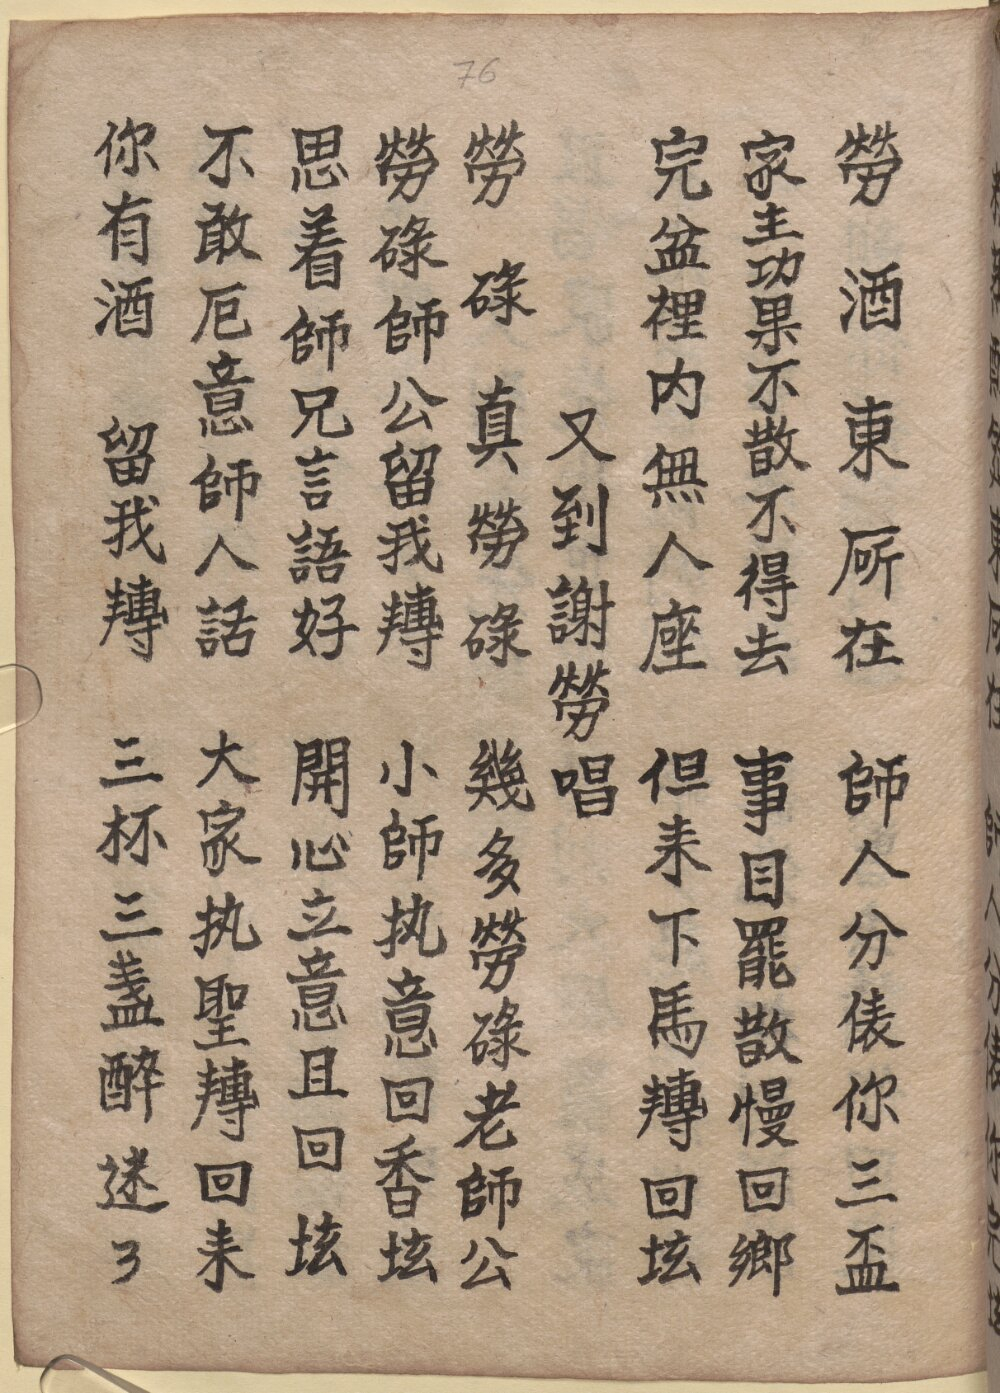 76
勞酒東所在 師人分俵你三盃
家主功果不散不得去 事目罷散慢回鄉
完盆裡内無人座 但耒下馬轉回坛
又到謝勞唱
勞碌真勞碌 幾多勞碌老師公
勞碌師公留我轉 小師执意回香坛
思着師兄言語好 開心立意且回坛
不敢厄意師人話 大家执聖轉回耒
你有酒 留我轉 三杯三盞醉迷了